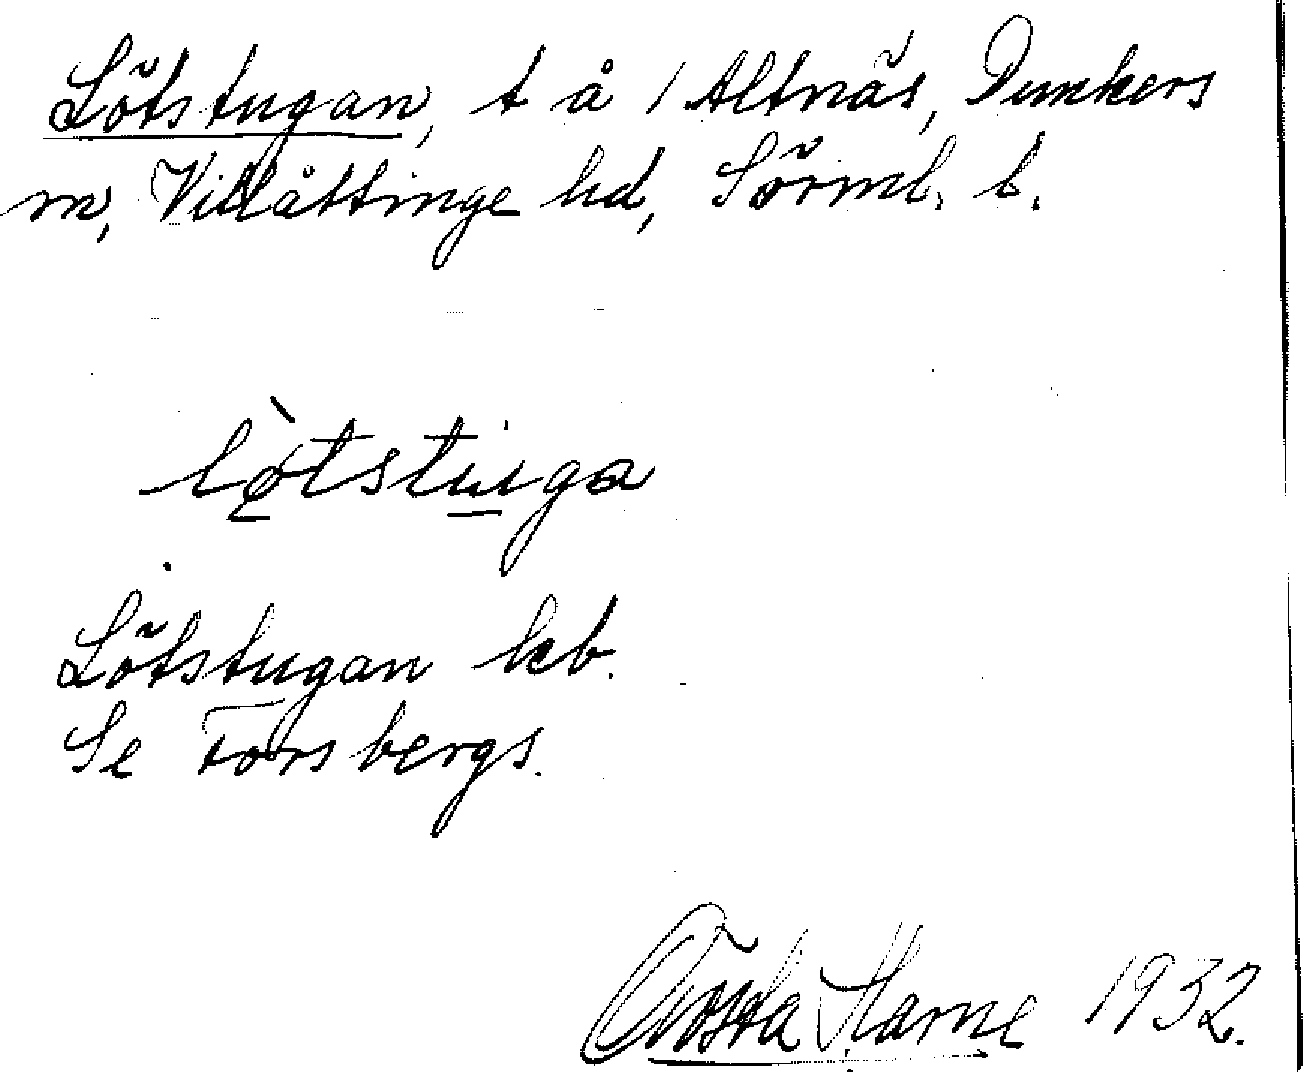 Lötstugan, t å 1 Altnäs, Dunkers
sn, Villåttinge hd, Sörml. l.
lø̀tstuga
Lötstugan kb.
Se Forsbergs.
Gösta Harne 1932.